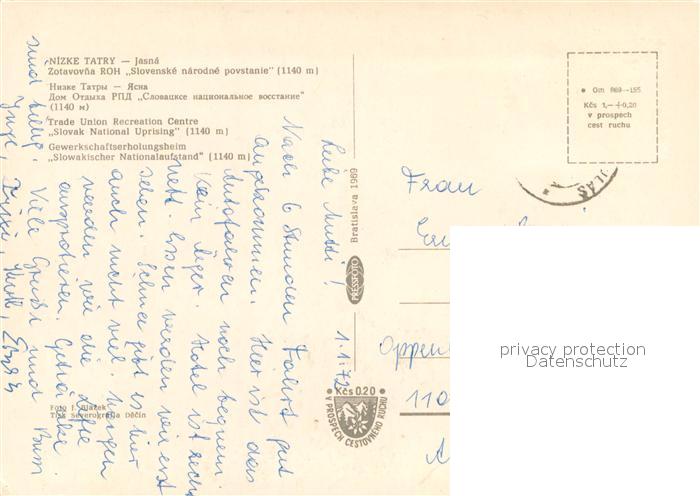 NÍZKE TATRY — Jasná
Zotavovňa ROH „Slovenské národné povstanie" (1140 m)
Низке Татры — Ясна
Дом Отдыха РПД „Словацксе национальное восстание"
(1140 м)
Trade Union Recreation Centre
„Slovak National Uprising" (1140 m)
Gewerkschaftserholungsheim
„Slowakischer Nationalaufstand" (1140 m)
Foto J. Blažek
Tisk Severografia Děčín
Bratislava 1969
PRESSFOTO
Om 869-155
Kčs 1,- +0,20
v prospech
cest ruchu
Kčs 0.20
V PROSPECH CESTOVNÉHO RUCHU
1.1.72
Liebe Mutti!
Nach 6 Stunden Fahrt gut
angekommen. Hier ist das
Autofahren noch bequem.
Kein Ärger. Hotel ist recht
nett. Essen werden wir erst
sehen. Schnee gibt es hier
auch nicht viel. Morgen
werden wir die Lifte
ausprobieren. Getränke
sind billig. Viele Grüße und Bussi
Frau
Oppen
110
privacy protection
Datenschutz